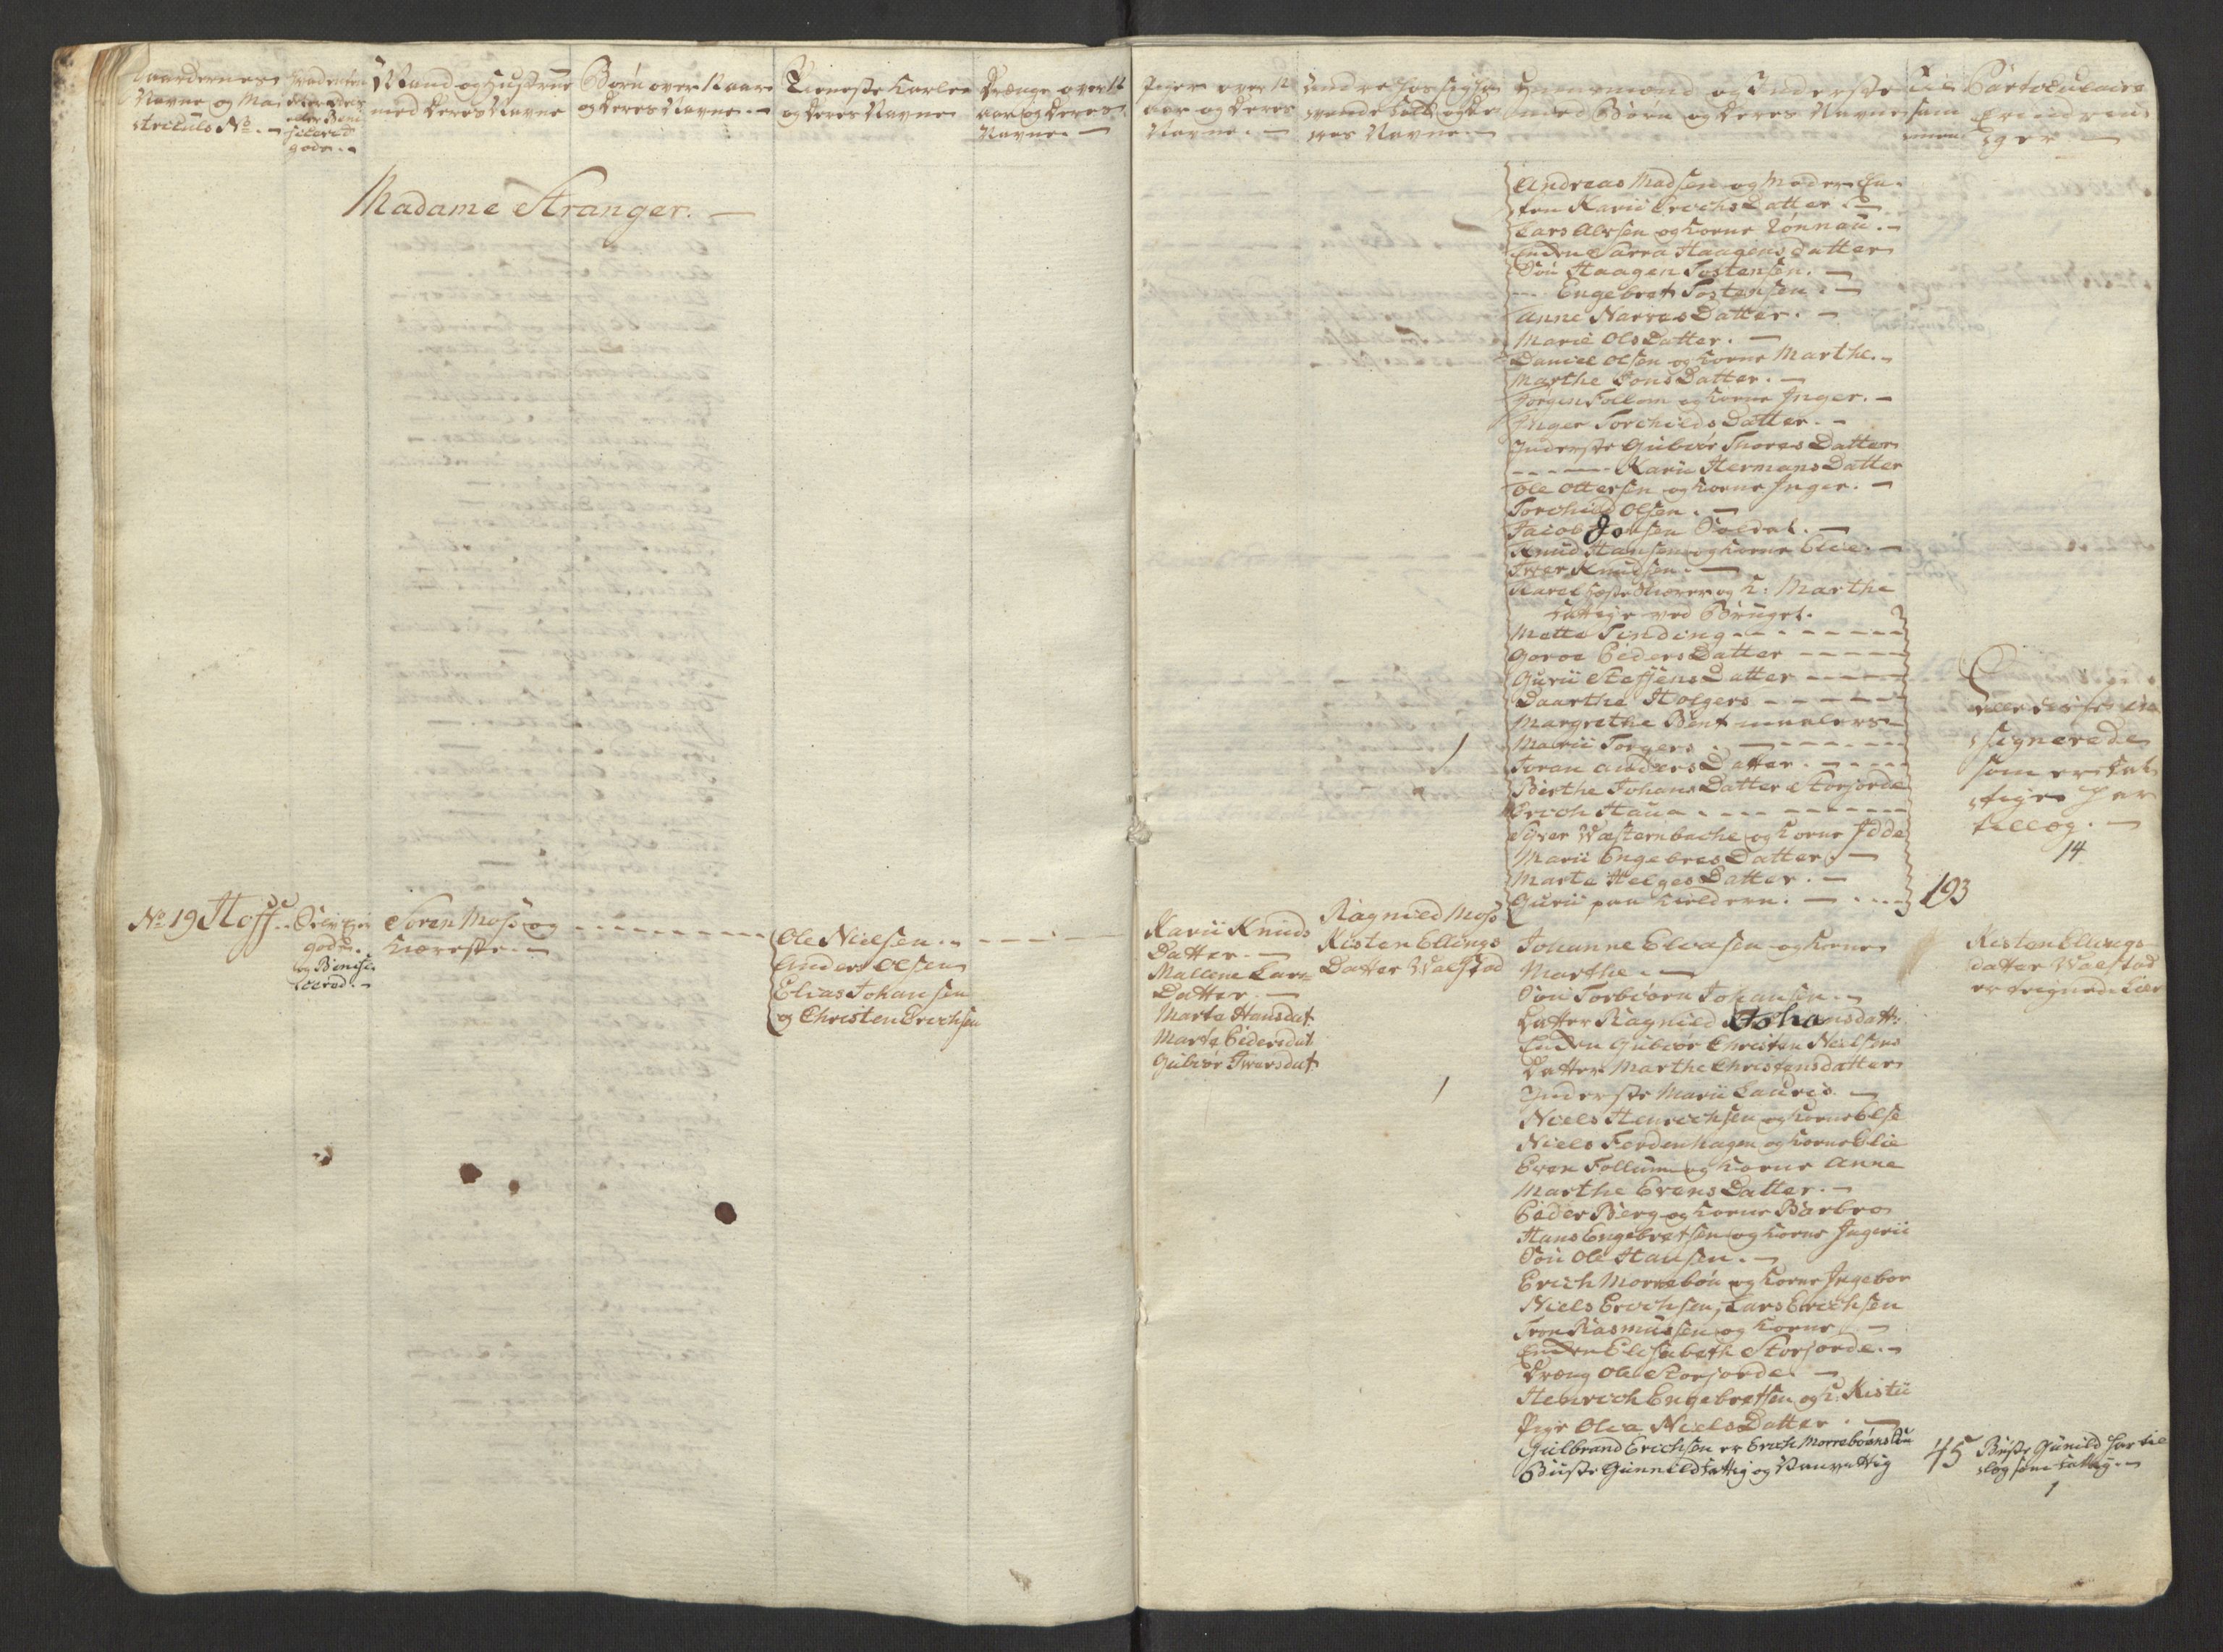 Gaardernes
Navne og Ma-
triculs No. -
Mand og Hustrue
med deres Navne
Børn over 12 aar
og deres Navne. -
Tieneste Karle
og deres Navne
Drænge over 12
aar og deres
Navne. -
Piger over 12
aar og deres
Navne. -
Andre hos sig ha-
vende Folk og de-
res Navne. -
Huusmænd og Inderste
med Børn og deres Navne
Particulaire
Erindrin-
ger -
Madame Stranger. -
Andreas Madsen og Moder En-
ken Karii Erichs Datter. -
Lars Alfsen og Kone Rønnau. -
Enken Sarra Haagens datter
Søn Haagen Tostensen. -
- - Engebret Tostensen. -
Anne Narves Datter. -
Marie Ols Datter. -
Daniel Olsen og Kone Marthe. -
Marthe Jons Datter. -
Jørgen Follom og Kone Inger. -
Inger Torchilds Datter. -
Inderste Gubiør Thores Datter
- - - - - Karii Hermans Datter
Ole Ottersen og Kone Inger. -
Torchild Olsen. -
Jacob Jonsen Soldat. -
Knud Hansen og Kone Elie. -
Iver Knudsen. -
Karel Hæste Skierer og K: Marthe
Fattige ved Bruget.
Mette Tinding - - - - - - -
Goroe Peders Datter - - - - -
Gurii Steffens Datter - - - -
Daarthe Holgers - - - - - -
Margrethe Bent maalers -
Marii Torgers . - - - - - -
Joran anders Datter. - - - -
Birthe Johans Datter Storjorde
Erich Haua . - - - - - - -
Siver Wæsternbache og Kone Idde
Marii Engebres Datter. -
Marte Helges Datter. -
Gurii paa Kieldern. - . - - -
1
193
Alle disse de-
signerede
som er Fat-
tige har
tillæg. -
14
No 19 Hoff. -
Selv Eier
gods. -
og Benefi-
ceered. -
Søren Moss og - - - - - - - - -
Kiæreste. -
Ole Nielsen. - - - - -
Anders Olsen
Elias Johansen
og Christen Erichsen
Karii Knuds
Datter. -
Mallene Lars-
Datter. -
Marte Hansdat.
Marte Pedersdat
Gubiør Iversdat
Ragnild Moss
Kisten Ellings
Datter Wolstad
1
Johanne Eliasen og Kone
Marthe. -
Søn Torbiørn Johansen. -
Datter Ragnild Johansdatt:
Enken Gubiør Christen Nielsens
Datter Marthe Christensdatter
Inderste Marii Lauris. -
Niels Henrichsen og Kone Else
Niels Fordenhagen og Kone Elie
Even Follum og Kone Anne
Marthe Evens Datter. -
Peder Berg og Kone Barbro
Hans Engebretsen og Kone Ingerii
Søn Ole Hansen. -
Erich Morrebøn og Kone Ingebor
Niels Erichsen, Lars Erichsen
Tron Rasmussen og Kone -
Enken Elisabeth Storjorde. -
Dreng Ole Storjorde. -
Henrich Engebretsen og K: Kistii
Pige Olea Niels Datter. -
Gulbrand Erichsen er Erich Morrebøens Søn
Birte Gunnild Fattig og Vanvittig
45
Kisten Ellings-
datter Wolstad
Birte Gunild har til
læg som Fattig. -
1